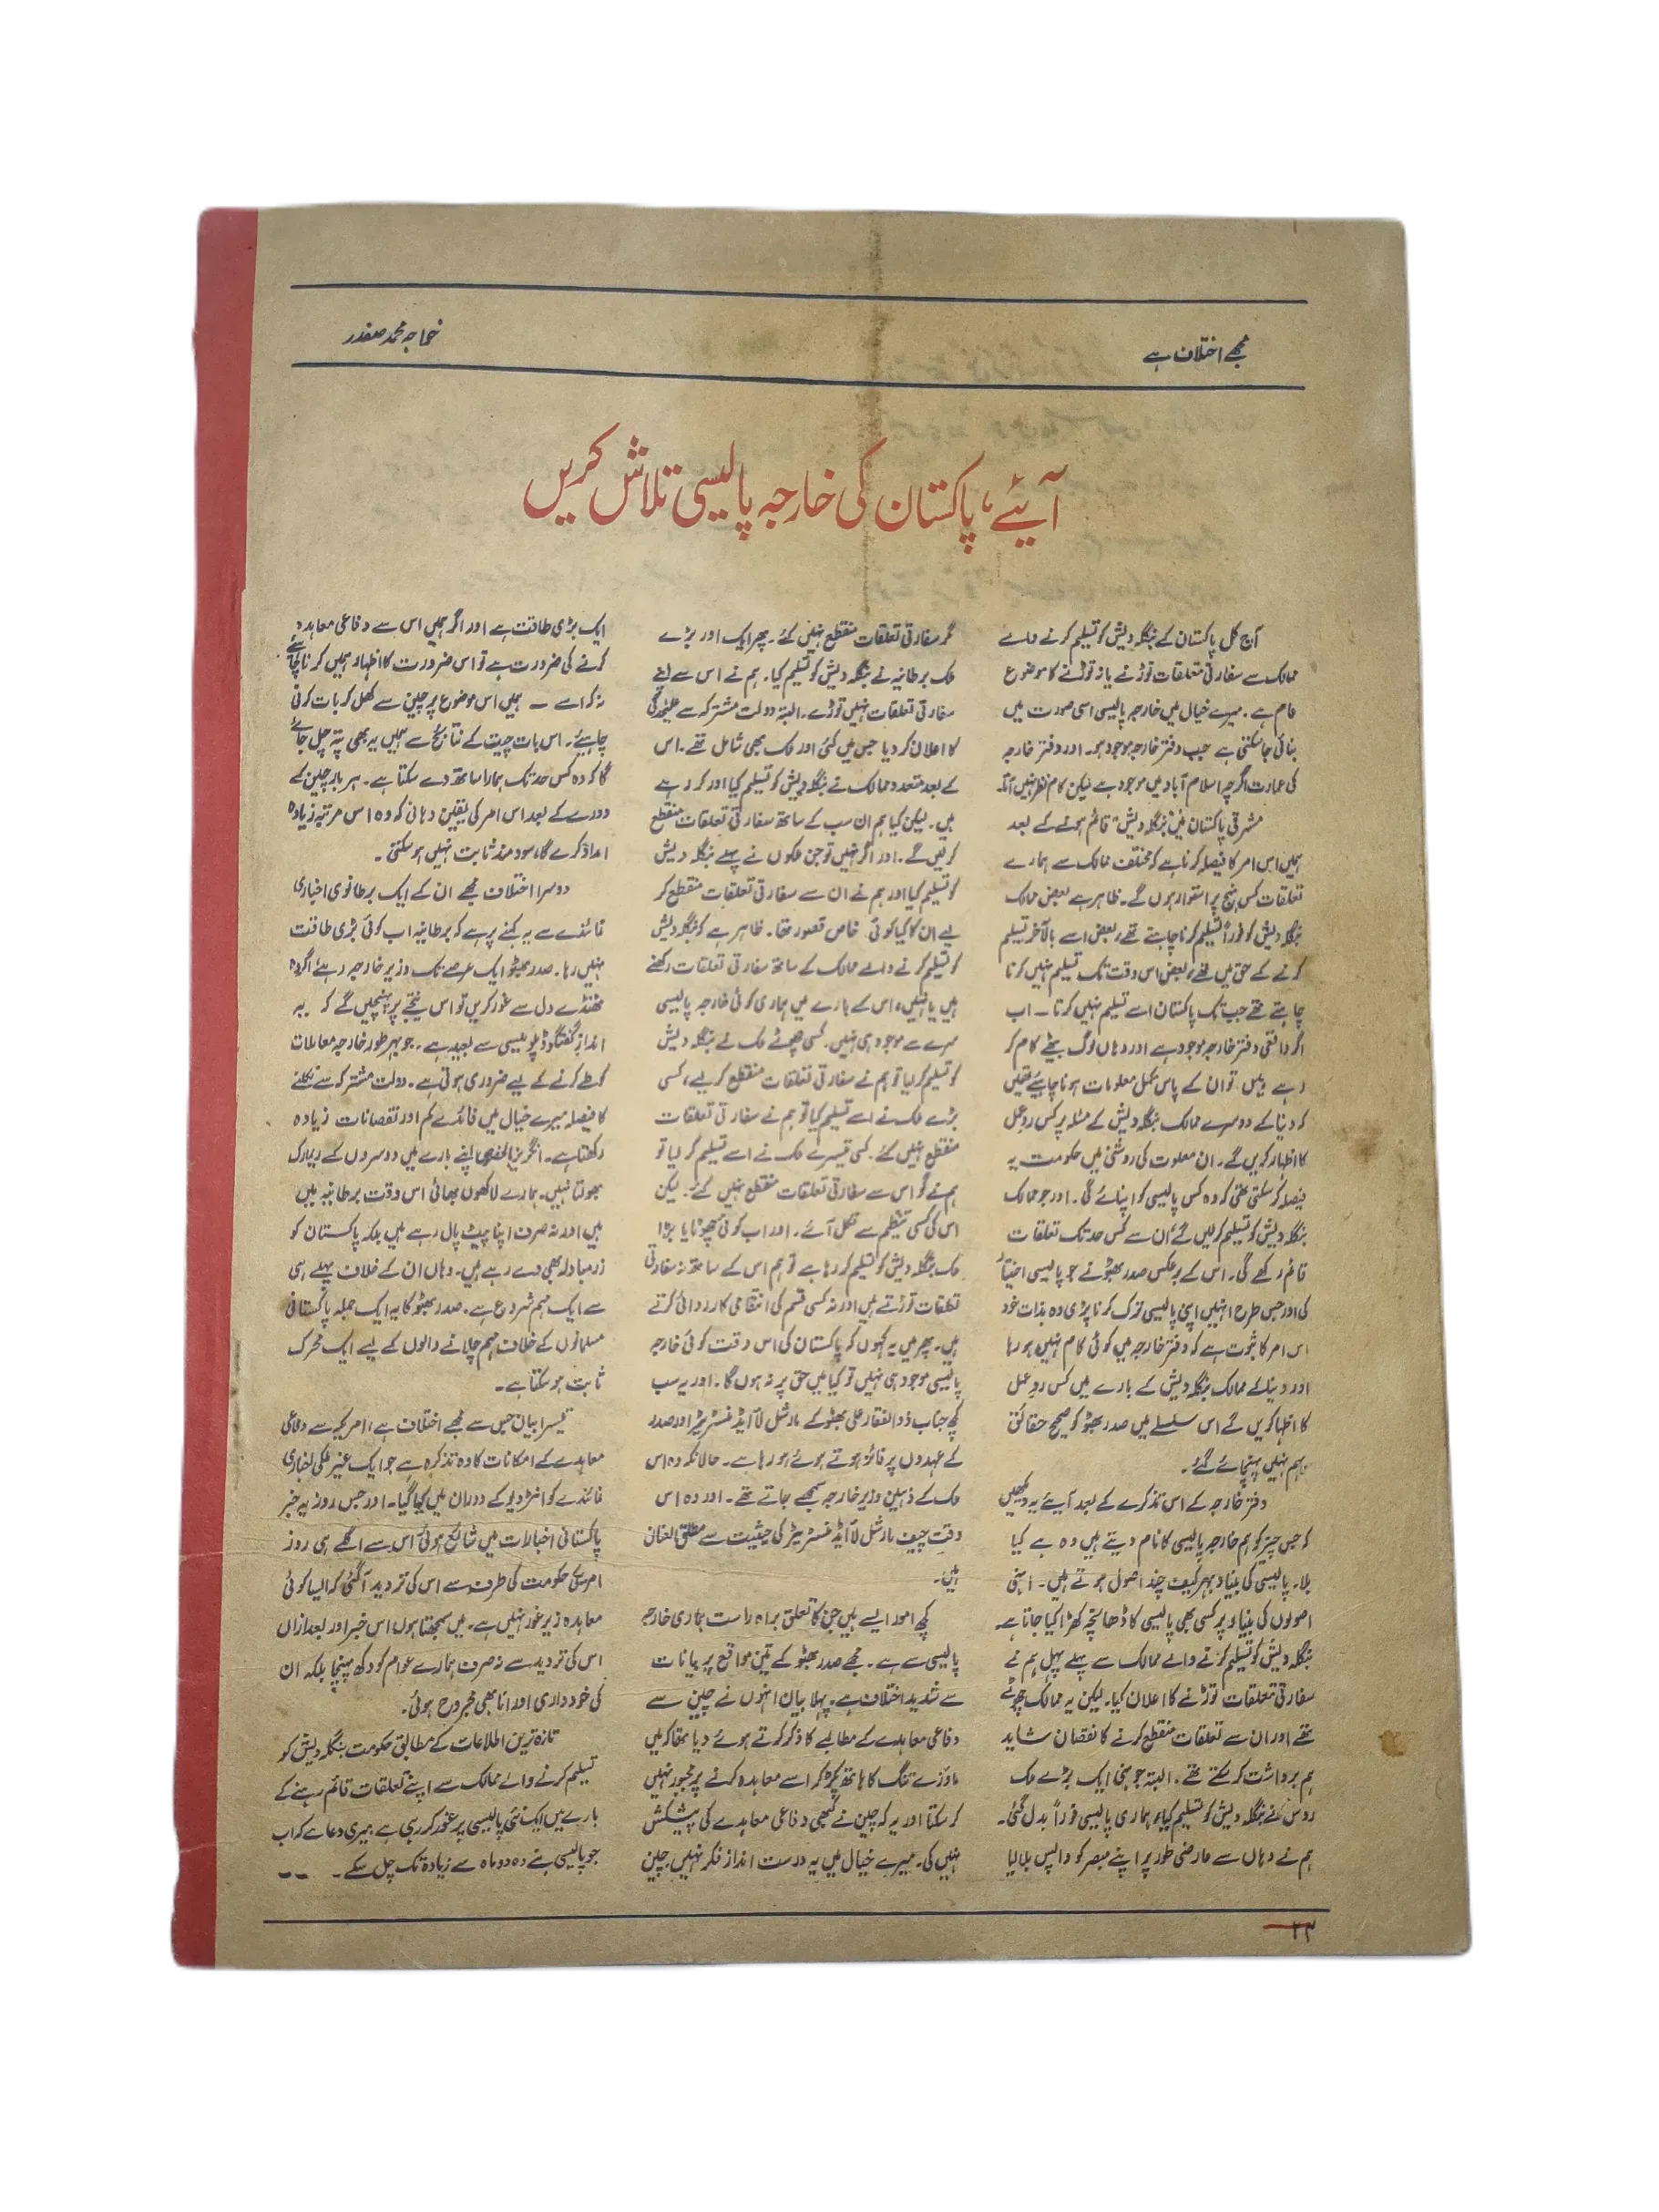 مجھے اختلاف ہے
خواجہ محمد صفدر
آیئے، پاکستان کی خارجہ پالیسی تلاش کریں
آج کل پاکستان کے بنگلہ دیش کو تسلیم کرنے والے
ممالک سے سفارتی تعلقات توڑنے یا نہ توڑنے کا موضوع
عام ہے۔ میرے خیال میں خارجہ پالیسی اسی صورت میں
بنائی جا سکتی ہے جب دفتر خارجہ موجود ہو۔ اور دفتر خارجہ
کی عمارت اگرچہ اسلام آباد میں موجود ہے لیکن کام نظر نہیں آتا۔
مشرقی پاکستان میں "بنگلہ دیش" قائم ہونے کے بعد
ہمیں اس امر کا فیصلہ کرنا ہے کہ مختلف ممالک سے ہمارے
تعلقات کس نہج پر استوار ہوں گے۔ ظاہر ہے بعض ممالک
بنگلہ دیش کو فوراً تسلیم کرنا چاہتے تھے، بعض اسے بالآخر تسلیم
کرنے کے حق میں تھے، بعض اس وقت تک تسلیم نہیں کرنا
چاہتے تھے جب تک پاکستان اسے تسلیم نہیں کرتا — اب
اگر واقعی دفتر خارجہ موجود ہے اور وہاں لوگ بیٹھے کام کر
رہے ہیں، تو ان کے پاس مکمل معلومات ہونا چاہیئے تھیں
کہ دنیا کے دوسرے ممالک بنگلہ دیش کے مسئلہ پر کس ردعمل
کا اظہار کریں گے۔ ان معلوت کی روشنی میں حکومت یہ
فیصلہ کر سکتی تھی کہ وہ کس پالیسی کو اپنائے گی۔ اور جو ممالک
بنگلہ دیش کو تسلیم کر لیں گے اُن سے کس حد تک تعلقات
قائم رکھے گی۔ اس کے برعکس صدر بھٹو نے جو پالیسی اختیار
کی اور جس طرح انہیں اپنی پالیسی ترک کرنا پڑی وہ بذات خود
اس امر کا ثبوت ہے کہ دفتر خارجہ میں کوئی کام نہیں ہو رہا
اور دنیا کے ممالک بنگلہ دیش کے بارے میں کس ردعمل
کا اظہار کریں گے اس سلسلے میں صدر بھٹو کو صحیح حقائق
بہم نہیں پہنچائے گئے۔
دفتر خارجہ کے اس تذکرے کے بعد آیئے یہ دیکھیں
کہ جس چیز کو ہم خارجہ پالیسی کا نام دیتے ہیں وہ ہے کیا
بلا۔ پالیسی کی بنیاد بہرکیف چند اصول ہوتے ہیں۔ انہی
اصولوں کی بنیاد پر کسی بھی پالیسی کا ڈھانچہ کھڑا کیا جاتا ہے۔
بنگلہ دیش کو تسلیم کرنے والے ممالک سے پہلے پہل ہم نے
سفارتی تعلقات توڑنے کا اعلان کیا۔ لیکن یہ ممالک چھوٹے
تھے اور ان سے تعلقات منقطع کرنے کا نقصان شاید
ہم برداشت کر سکتے تھے۔ البتہ جونہی ایک بڑے ملک
روس نے بنگلہ دیش کو تسلیم کیا، ہماری پالیسی فوراً بدل گئی۔
ہم نے وہاں سے عارضی طور پر اپنے مبصر کو واپس بلا لیا
مگر سفارتی تعلقات منقطع نہیں کئے۔ پھر ایک اور بڑے
ملک برطانیہ نے بنگلہ دیش کو تسلیم کیا۔ ہم نے اس سے اپنے
سفارتی تعلقات نہیں توڑے۔ البتہ دولت مشترکہ سے علیٰحدگی
کا اعلان کر دیا جس میں کئی اور ملک بھی شامل تھے۔ اس
کے بعد متعدد ممالک نے بنگلہ دیش کو تسلیم کیا اور کر رہے
ہیں۔ لیکن کیا ہم ان سب کے ساتھ سفارتی تعلقات منقطع
کر لیں گے۔ اور اگر نہیں تو جن ملکوں نے پہلے بنگلہ دیش
کو تسلیم کیا اور ہم نے ان سے سفارتی تعلقات منقطع کر
لیے ان کا کیا کوئی خاص قصور تھا۔ ظاہر ہے کہ بنگلہ دیش
کو تسلیم کرنے والے ممالک کے ساتھ سفارتی تعلقات رکھنے
ہیں یا نہیں، اس کے بارے میں ہماری کوئی خارجہ پالیسی
سرے سے موجود ہی نہیں۔ کسی چھوٹے ملک نے بنگلہ دیش
کو تسلیم کر لیا تو ہم نے سفارتی تعلقات منقطع کر لیے، کسی
بڑے ملک نے اسے تسلیم کیا تو ہم نے سفارتی تعلقات
منقطع نہیں کئے۔ کسی تیسرے ملک نے اسے تسلیم کر لیا تو
ہم نے گو اس سے سفارتی تعلقات منقطع نہیں کئے۔ لیکن
اس کی کسی تنظیم سے نکل آئے۔ اور اب کوئی چھوٹا یا بڑا
ملک بنگلہ دیش کو تسلیم کر رہا ہے تو ہم اس کے ساتھ نہ سفارتی
تعلقات توڑتے ہیں اور نہ کسی قسم کی انتقامی کارروائی کرتے
ہیں۔ پھر میں یہ کہوں کہ پاکستان کی اس وقت کوئی خارجہ
پالیسی موجود ہی نہیں تو کیا میں حق پر نہ ہوں گا۔ اور یہ سب
کچھ جناب ذوالفقار علی بھٹو کے مارشل لا ایڈمنسٹریٹر اور صدر
کے عہدوں پر فائز ہوتے ہوئے ہو رہا ہے۔ حالانکہ وہ اس
ملک کے ذہین وزیر خارجہ سمجھے جاتے تھے۔ اور وہ اس
وقت چیف مارشل لا ایڈمنسٹریٹر کی حیثیت سے مطلق العنان
ہیں۔
کچھ امور ایسے ہیں جن کا تعلق براہ راست ہماری خارجہ
پالیسی سے ہے۔ مجھے صدر بھٹو کے تین مواقع پر بیانات
سے شدید اختلاف ہے۔ پہلا بیان انہوں نے چین سے
دفاعی معاہدے کے مطالبے کا ذکر کرتے ہوئے دیا تھا کہ میں
ماؤزے تنگ کا ہاتھ پکڑ کر اسے معاہدہ کرنے پر مجبور نہیں
کر سکتا اور یہ کہ چین نے کبھی دفاعی معاہدے کی پیشکش
نہیں کی۔ میرے خیال میں یہ درست انداز فکر نہیں۔ چین
ایک بڑی طاقت ہے اور اگر ہمیں اس سے دفاعی معاہدہ
کرنے کی ضرورت ہے تو اس ضرورت کا اظہار ہمیں کرنا چاہئے
نہ کہ اسے — ہمیں اس موضوع پر چین سے کھل کر بات کرنی
چاہیئے۔ اس بات چیت کے نتائج سے ہمیں یہ بھی پتہ چل جائے
گا کہ وہ کس حد تک ہمارا ساتھ دے سکتا ہے۔ ہر بار چین کے
دورے کے بعد اس امر کی یقین دہانی کہ وہ اس مرتبہ زیادہ
امداد کرے گا، سود مند ثابت نہیں ہو سکتی۔
دوسرا اختلاف مجھے ان کے ایک برطانوی اخباری
نمائندے سے یہ کہنے پر ہے کہ برطانیہ اب کوئی بڑی طاقت
نہیں رہا۔ صدر بھٹو ایک عرصے تک وزیر خارجہ رہے، اگر وہ
ٹھنڈے دل سے غور کریں تو اس نتیجے پر پہنچیں گے کہ یہ
انداز گفتگو ڈپلومیسی سے بعید ہے۔ جو بہر طور خارجہ معاملات
کو طے کرنے کے لیے ضروری ہوتی ہے۔ دولت مشترکہ سے نکلنے
کا فیصلہ میرے خیال میں فائدے کم اور نقصانات زیادہ
رکھتا ہے۔ انگریز بالخصوص اپنے بارے میں دوسروں کے ریمارک
بھولتا نہیں۔ ہمارے لاکھوں بھائی اس وقت برطانیہ میں
ہیں اور نہ صرف اپنا پیٹ پال رہے ہیں بلکہ پاکستان کو
زرمبادلہ بھی دے رہے ہیں۔ وہاں ان کے خلاف پہلے ہی
سے ایک مہم شروع ہے۔ صدر بھٹو کا یہ ایک جملہ پاکستانی
مسلمانوں کے خلاف مہم چلانے والوں کے لیے ایک محرک
ثابت ہو سکتا ہے۔
تیسرا بیان جس سے مجھے اختلاف ہے، امریکہ سے دفاعی
معاہدے کے امکانات کا وہ تذکرہ ہے جو ایک غیر ملکی اخباری
نمائندے کو انٹرویو کے دوران میں کیا گیا۔ اور جس روز یہ خبر
پاکستانی اخبارات میں شائع ہوئی اُس سے اگلے ہی روز
امریکی حکومت کی طرف سے اس کی تردید آ گئی کہ ایسا کوئی
معاہدہ زیر غور نہیں ہے۔ میں سمجھتا ہوں، اس خبر اور بعد ازاں
اس کی تردید سے نہ صرف ہمارے عوام کو دکھ پہنچا بلکہ ان
کی خود داری اور انا بھی مجروح ہوئی۔
تازہ ترین اطلاعات کے مطابق حکومت بنگلہ دیش کو
تسلیم کرنے والے ممالک سے اپنے تعلقات قائم رہنے کے
بارے میں ایک نئی پالیسی پر غور کر رہی ہے۔ میری دعا ہے کہ اب
جو پالیسی بنے وہ دو ماہ سے زیادہ تک چل سکے۔ --